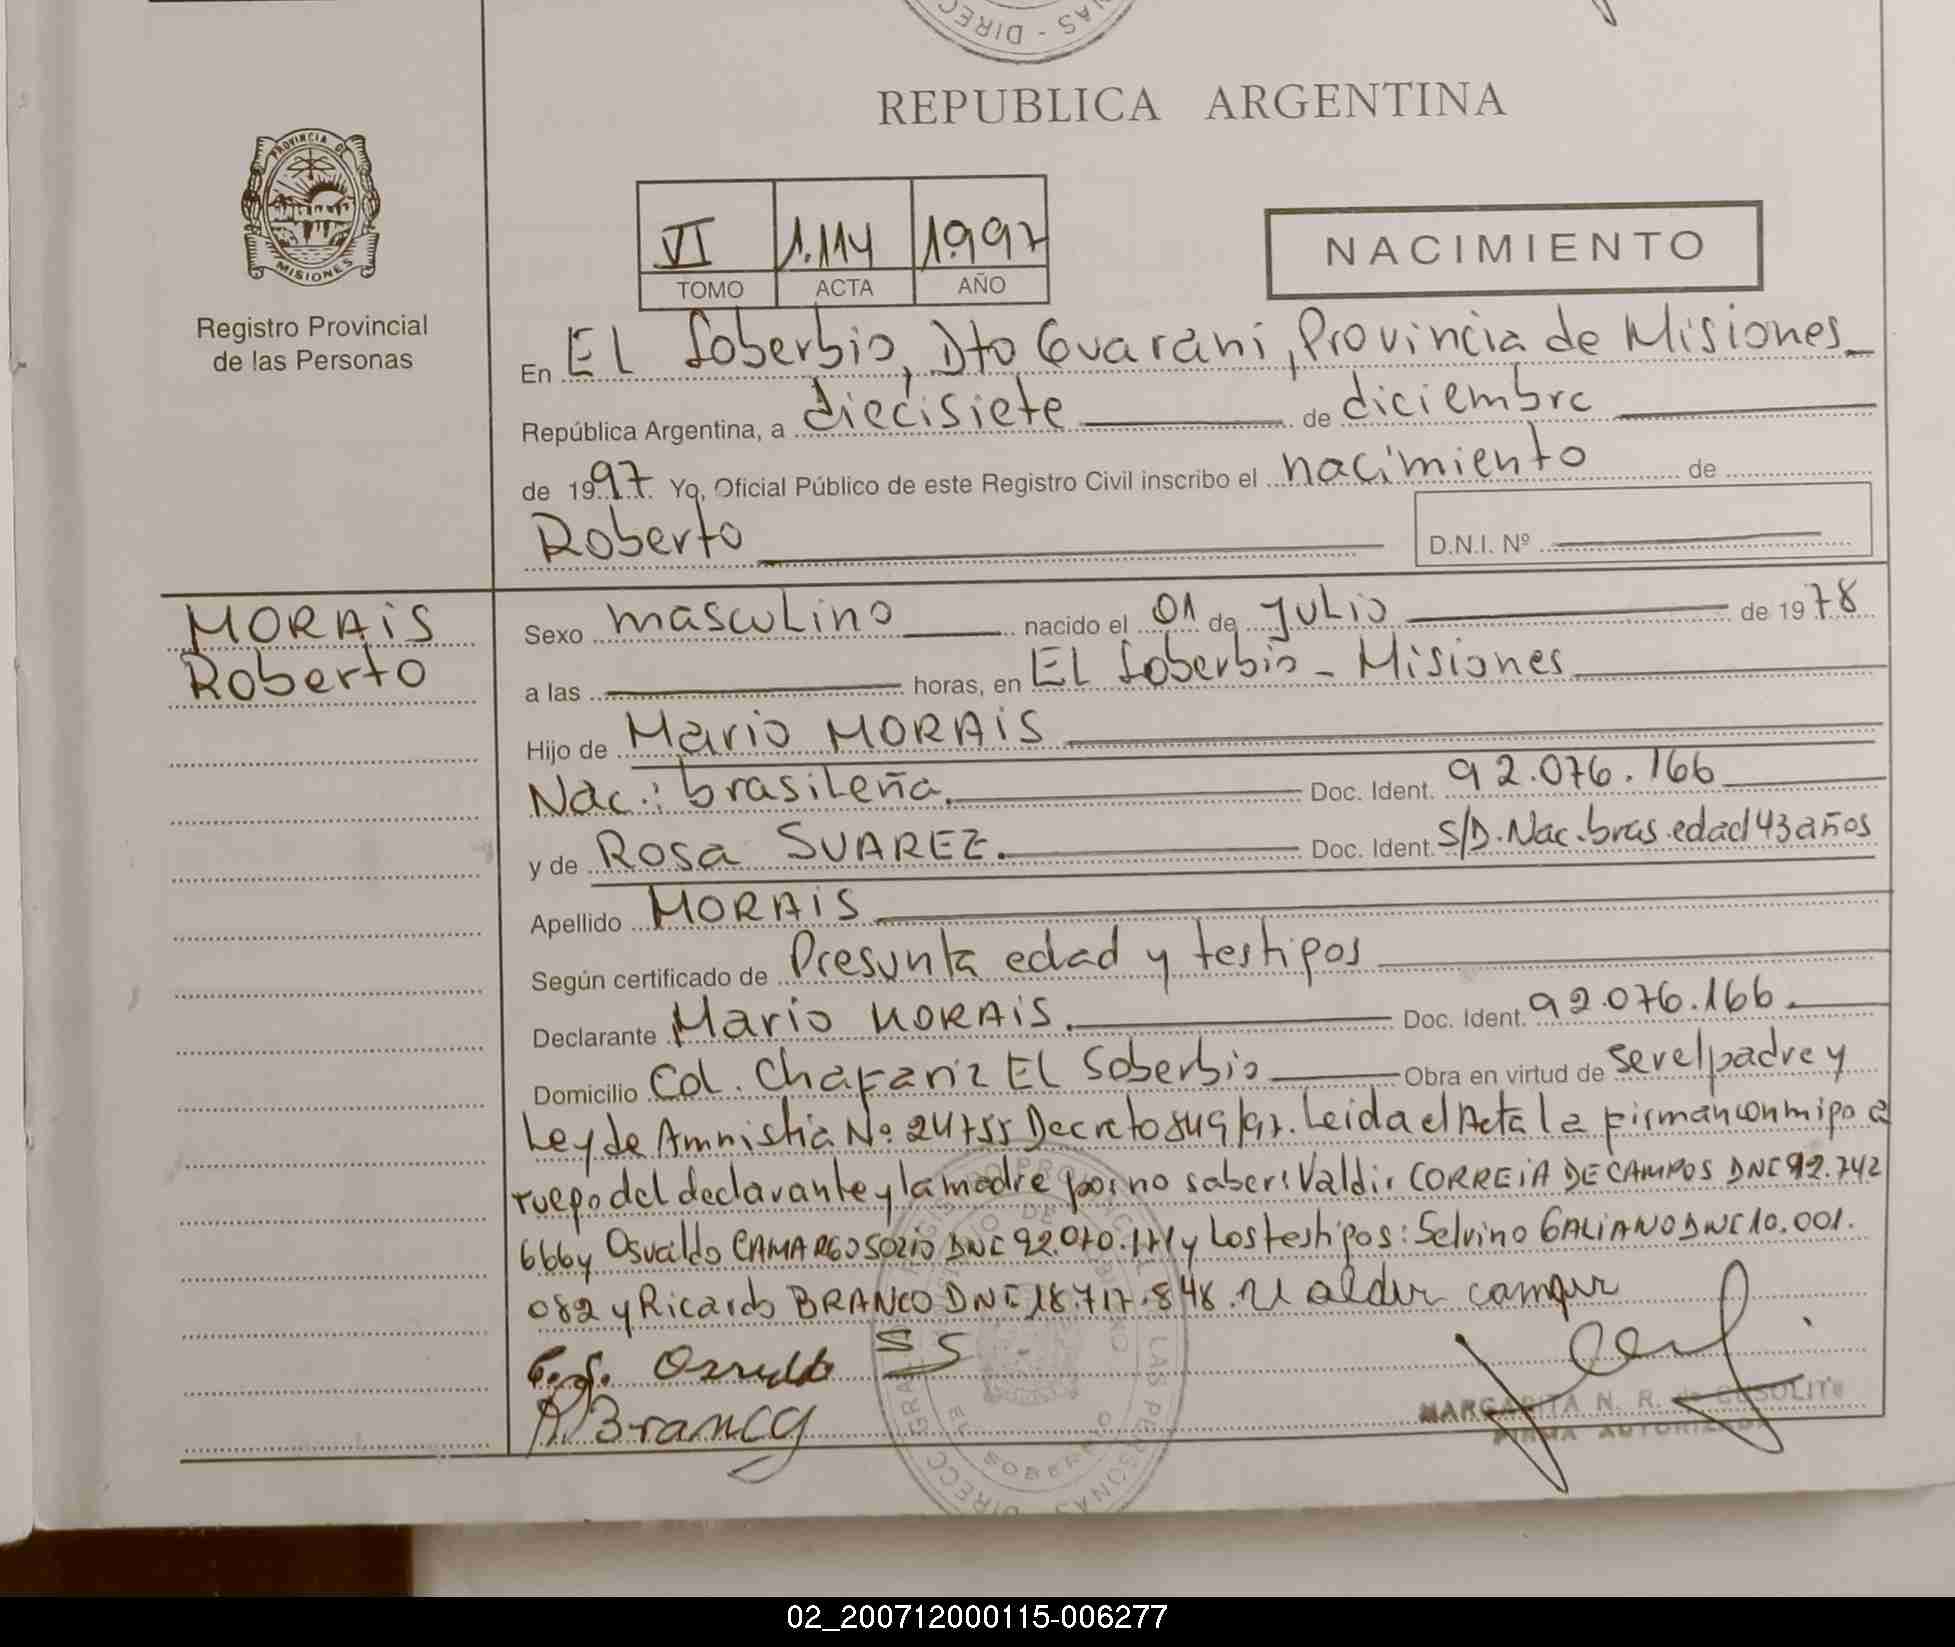 DIRECC - NAS
REPUBLICA ARGENTINA
PROVINCIA DE
MISIONES
Registro Provincial
de las Personas
VI 1.114 1.997
TOMO ACTA AÑO
NACIMIENTO
En El Soberbio, Dto Guarani, Provincia de Misiones
República Argentina, a diecisiete de diciembre
de 1997. Yo, Oficial Público de este Registro Civil inscribo el nacimiento de
Roberto D.N.I. Nº
MORAiS
Roberto
Sexo masculino nacido el 01 de Julio de 1978
a las horas, en El Soberbio - Misiones
Hijo de Mario MORAiS
Nac.: brasileña. Doc. Ident. 92.076.166
y de Rosa SUAREZ. Doc. Ident. S/D. Nac. bras. edad 43 años
Apellido MORAiS
Según certificado de Presunta edad y testigos
Declarante Mario MORAiS. Doc. Ident. 92.076.166.
Domicilio Col. Chafariz El Soberbio Obra en virtud de ser el padre y
Ley de Amnistia Nº 24755 Decreto 849/97. Leida el Acta la firman conmigo a
ruego del declarante y la madre por no saber: Valdir CORREiA DE CAMPOS DNI 92.742
666 y Osvaldo CAMARGO DNI 92.070.171 y Los testigos: Selvino GALiANO DNI 10.001.
082 y Ricardo BRANCO DNI 18.717.848.
Osvaldo
R Branco
MARGARITA N. R. de
FIRMA AUTORIZADA
02_200712000115-006277